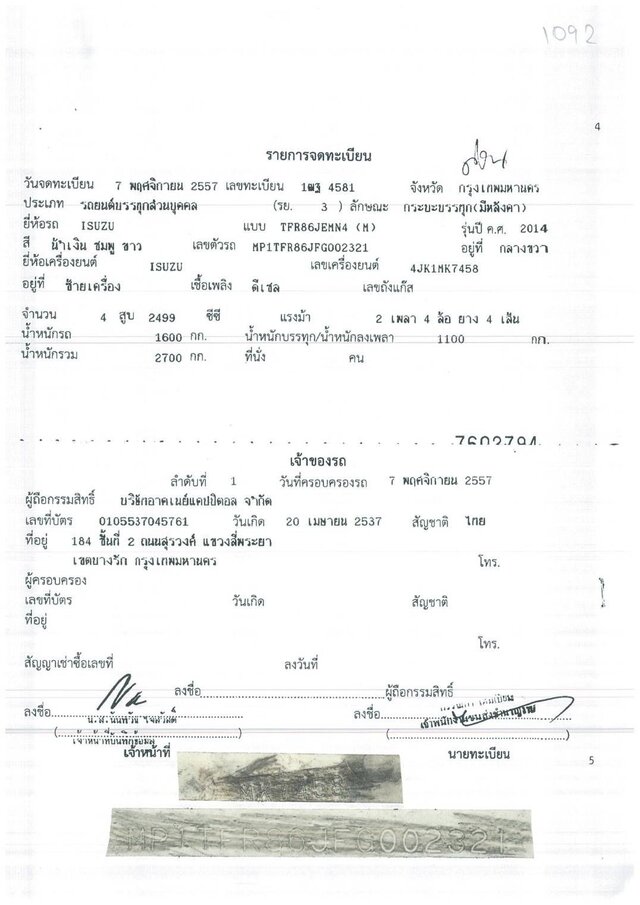 1092
4
รายการจดทะเบียน
วันจดทะเบียน 7 พฤศจิกายน 2557 เลขทะเบียน 1ฒฐ 4581 จังหวัด กรุงเทพมหานคร
ประเภท รถยนต์บรรทุกส่วนบุคคล (รย. 3 ) ลักษณะ กระบะบรรทุก(มีหลังคา)
ยี่ห้อรถ ISUZU แบบ TFR86JEMN4 (M) รุ่นปี ค.ศ. 2014
สี น้ำเงิน ชมพู ขาว เลขตัวรถ MP1TFR86JFG002321 อยู่ที่ กลางขวา
ยี่ห้อเครื่องยนต์ ISUZU เลขเครื่องยนต์ 4JK1MK7458
อยู่ที่ ซ้ายเครื่อง เชื้อเพลิง ดีเซล เลขถังแก๊ส
จำนวน 4 สูบ 2499 ซีซี แรงม้า 2 เพลา 4 ล้อ ยาง 4 เส้น
น้ำหนักรถ 1600 กก. น้ำหนักบรรทุก/น้ำหนักลงเพลา 1100 กก.
น้ำหนักรวม 2700 กก. ที่นั่ง คน
7602794
เจ้าของรถ
ลำดับที่ 1 วันที่ครอบครองรถ 7 พฤศจิกายน 2557
ผู้ถือกรรมสิทธิ์ บริษัทอาคเนย์แคปปิตอล จำกัด
เลขที่บัตร 0105537045761 วันเกิด 20 เมษายน 2537 สัญชาติ ไทย
ที่อยู่ 184 ชั้นที่ 2 ถนนสุรวงศ์ แขวงสี่พระยา
เขตบางรัก กรุงเทพมหานคร โทร.
ผู้ครอบครอง
เลขที่บัตร วันเกิด สัญชาติ
ที่อยู่
โทร.
สัญญาเช่าซื้อเลขที่ ลงวันที่
ลงชื่อ ผู้ถือกรรมสิทธิ์
ลงชื่อ ลงชื่อ
น.ส.
เจ้าหน้าที่บันทึกข้อมูล
เจ้าหน้าที่ นายทะเบียน
5
MP1TFR86JFG002321